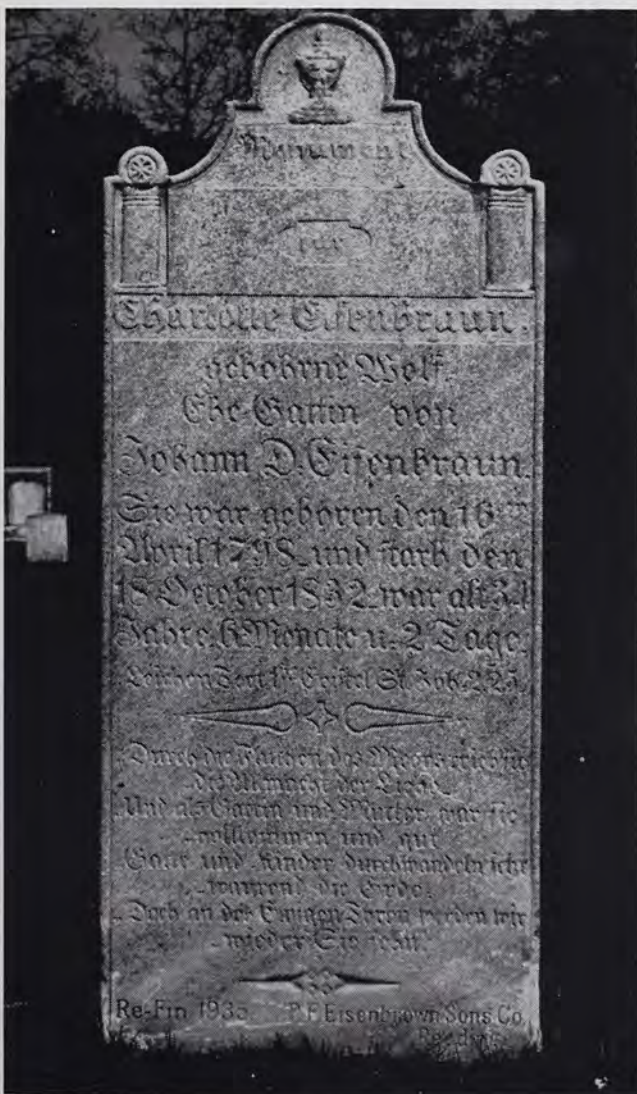 Monument
für
Charlotte Eisenbraun,
gebohrne Wolf.
Ehe-Gattin von
Johann D. Eisenbraun.
Sie war geboren den 16ten
April 1798. und starb den
18 October 1832. war alt 34
Jahre. 6 Monate u. 2 Tage.
Leichen Text 1te Epistel St. Joh. 2. 25.
Durch die des
der
Und als Gattin und Mutter war sie
vollkommen und gut
und Kinder durchwandeln
die Erde.
Doch an des Ewigen werden wir
wieder Sie sehn.
Re-Fin 1935 P.F. Eisenbrown Sons Co.